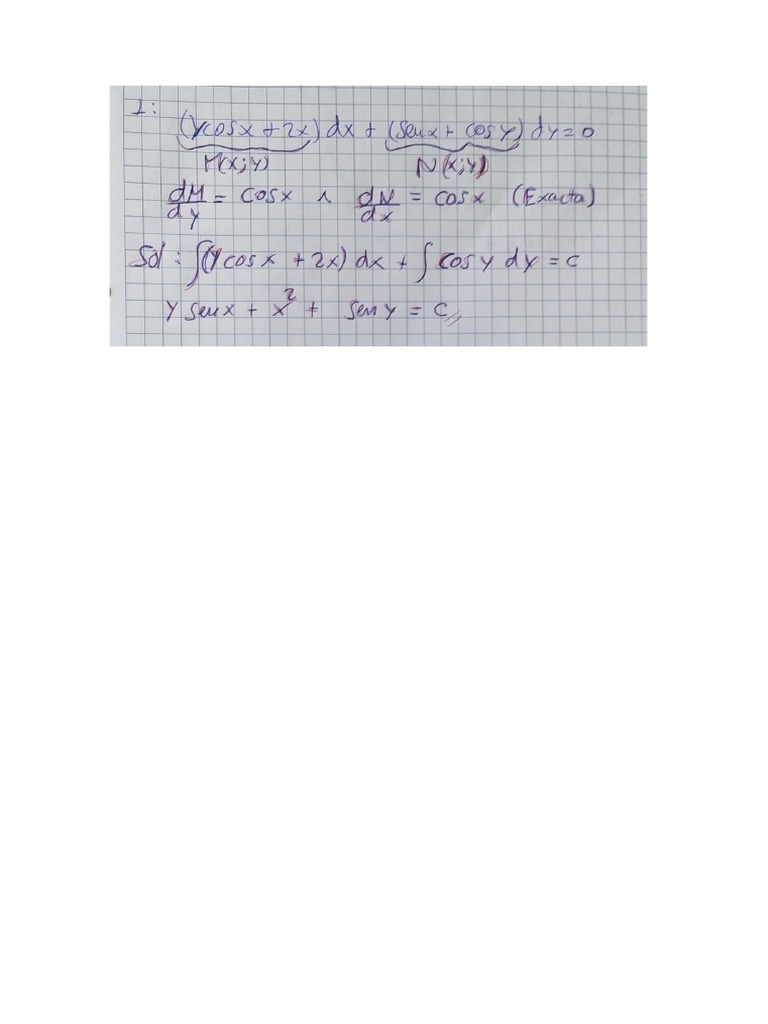 1:
(y cosx + 2x) dx + (senx + cosy) dy = 0
M(x;y) N(x;y)
dM/dy = cosx ∧ dN/dx = cosx (Exacta)
Sol: ∫(y cosx + 2x) dx + ∫ cosy dy = c
y senx + x² + seny = c